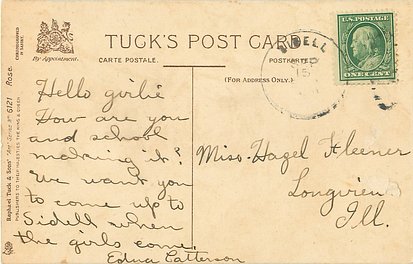 TUCK'S POST CARD
CARTE POSTALE.
POSTKARTE
(FOR ADDRESS ONLY.)
By Appointment.
CHROMOGRAPHED
IN SAXONY
Raphael Tuck & Sons' "Art" Series No 6121 Rose.
PUBLISHERS TO THEIR MAJESTIES THE KING & QUEEN
SIDELL
15
U.S. POSTAGE
ONE CENT
Hello girlie
How are you
and school
making it?
We want you
to come up to
Sidell when
the girls come.
Edna Catterson
Miss. Hazel Kleener
Longview
Ill.